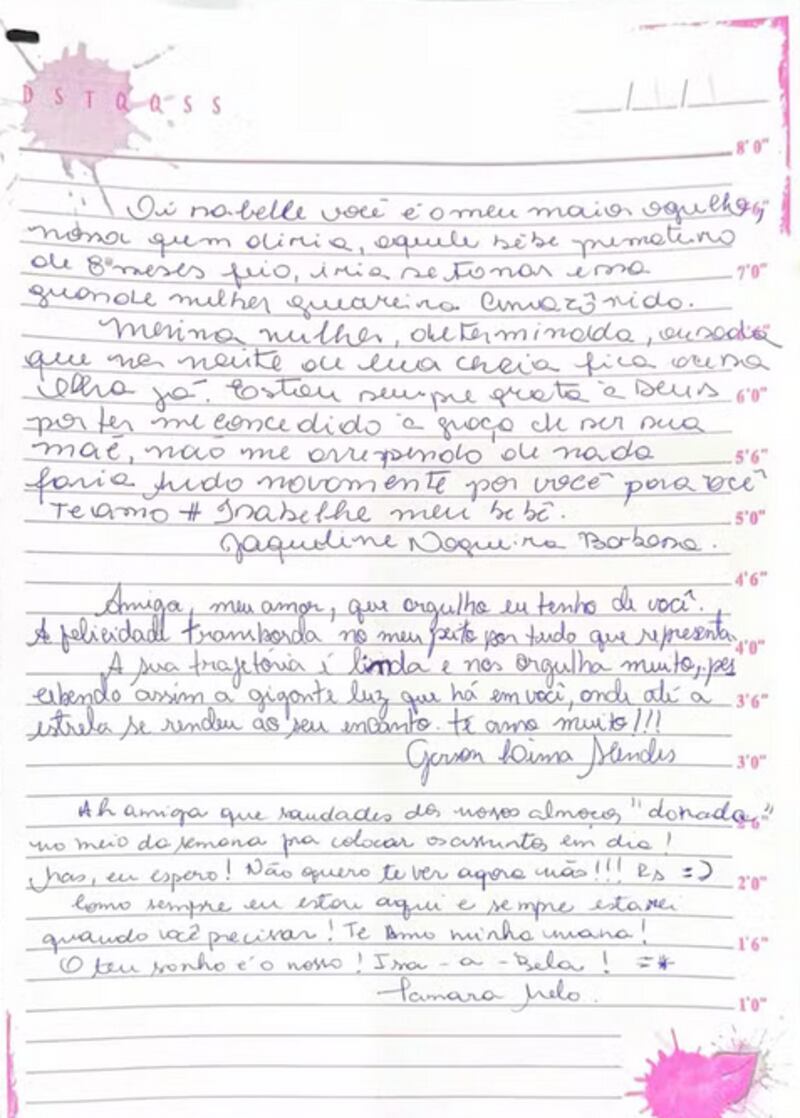 D S T Q Q S S
8'0"
Oi isabelle você é o meu maior ogulho,
nossa quem diria, aquele bêbe prematuro
de 8 meses feio, iria se tonar essa
7'0"
grande mulher guerreira Amazônida.
Menina mulher, determinada, ousada
que na noite de lua cheia fica
Estou sempre grata a Deus
6'0"
por ter me concedido a graça de ser sua
mãe, não me arrependo de nada
5'6"
faria tudo novamente por você para você
Te amo # Isabelhe meu bebê.
5'0"
Jaqueline Nogueira Barbosa.
4'6"
Amiga, meu amor, que orgulho eu tenho de você.
A felicidade transborda no meu peito por tudo que representa.
4'0"
A sua trajetória é linda e nos orgulha muito, per
cebendo assim a gigante luz que há em você, onde até a
3'6"
estrela se rendeu ao seu encanto. te amo muito!!!
Gerson Lima Mendes
3'0"
Ah amiga que saudades dos nossos almoços "donada"
no meio da semana pra colocar os assuntos em dia!
Mas, eu espero! Não quero te ver agora não!!! Rs =)
2'0"
Como sempre eu estou aqui e sempre estarei
quando você precisar! Te Amo minha mana!
1'6"
O teu sonho é o nosso! Isa-a-Bela! =*
Tamara Melo.
1'0"